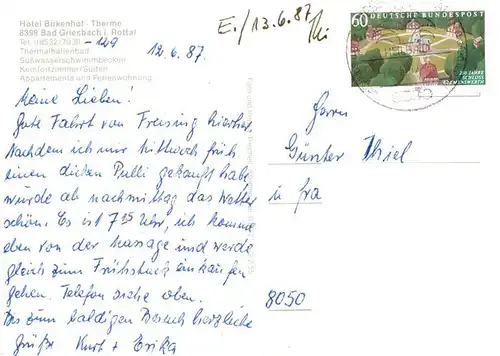 Hotel Birkenhof · Therme
8399 Bad Griesbach i. Rottal
-129
Thermalhallenbad
Süßwasserschwimmbecken
Komfortzimmer/Suiten
Appartements und Ferienwohnung
12.6.87.
E./13.6.87
60 DEUTSCHE BUNDESPOST
250 JAHRE
SCHLOSS
CLEMENSWERTH
Meine Lieben!
Gute Fahrt von Freising hierher.
Nachdem ich mir Mittwoch früh
einen dicken Pulli gekauft habe,
wurde ab nachmittag das Wetter
schön. Es ist 7 Uhr, ich komme
eben von der Massage und werde
gleich zum Frühstück einkaufen
gehen. Telefon siehe oben.
Bis zum baldigen Besuch herzliche
Grüße Kurt + Erika
Herrn
Günter Thiel
u fra
8050